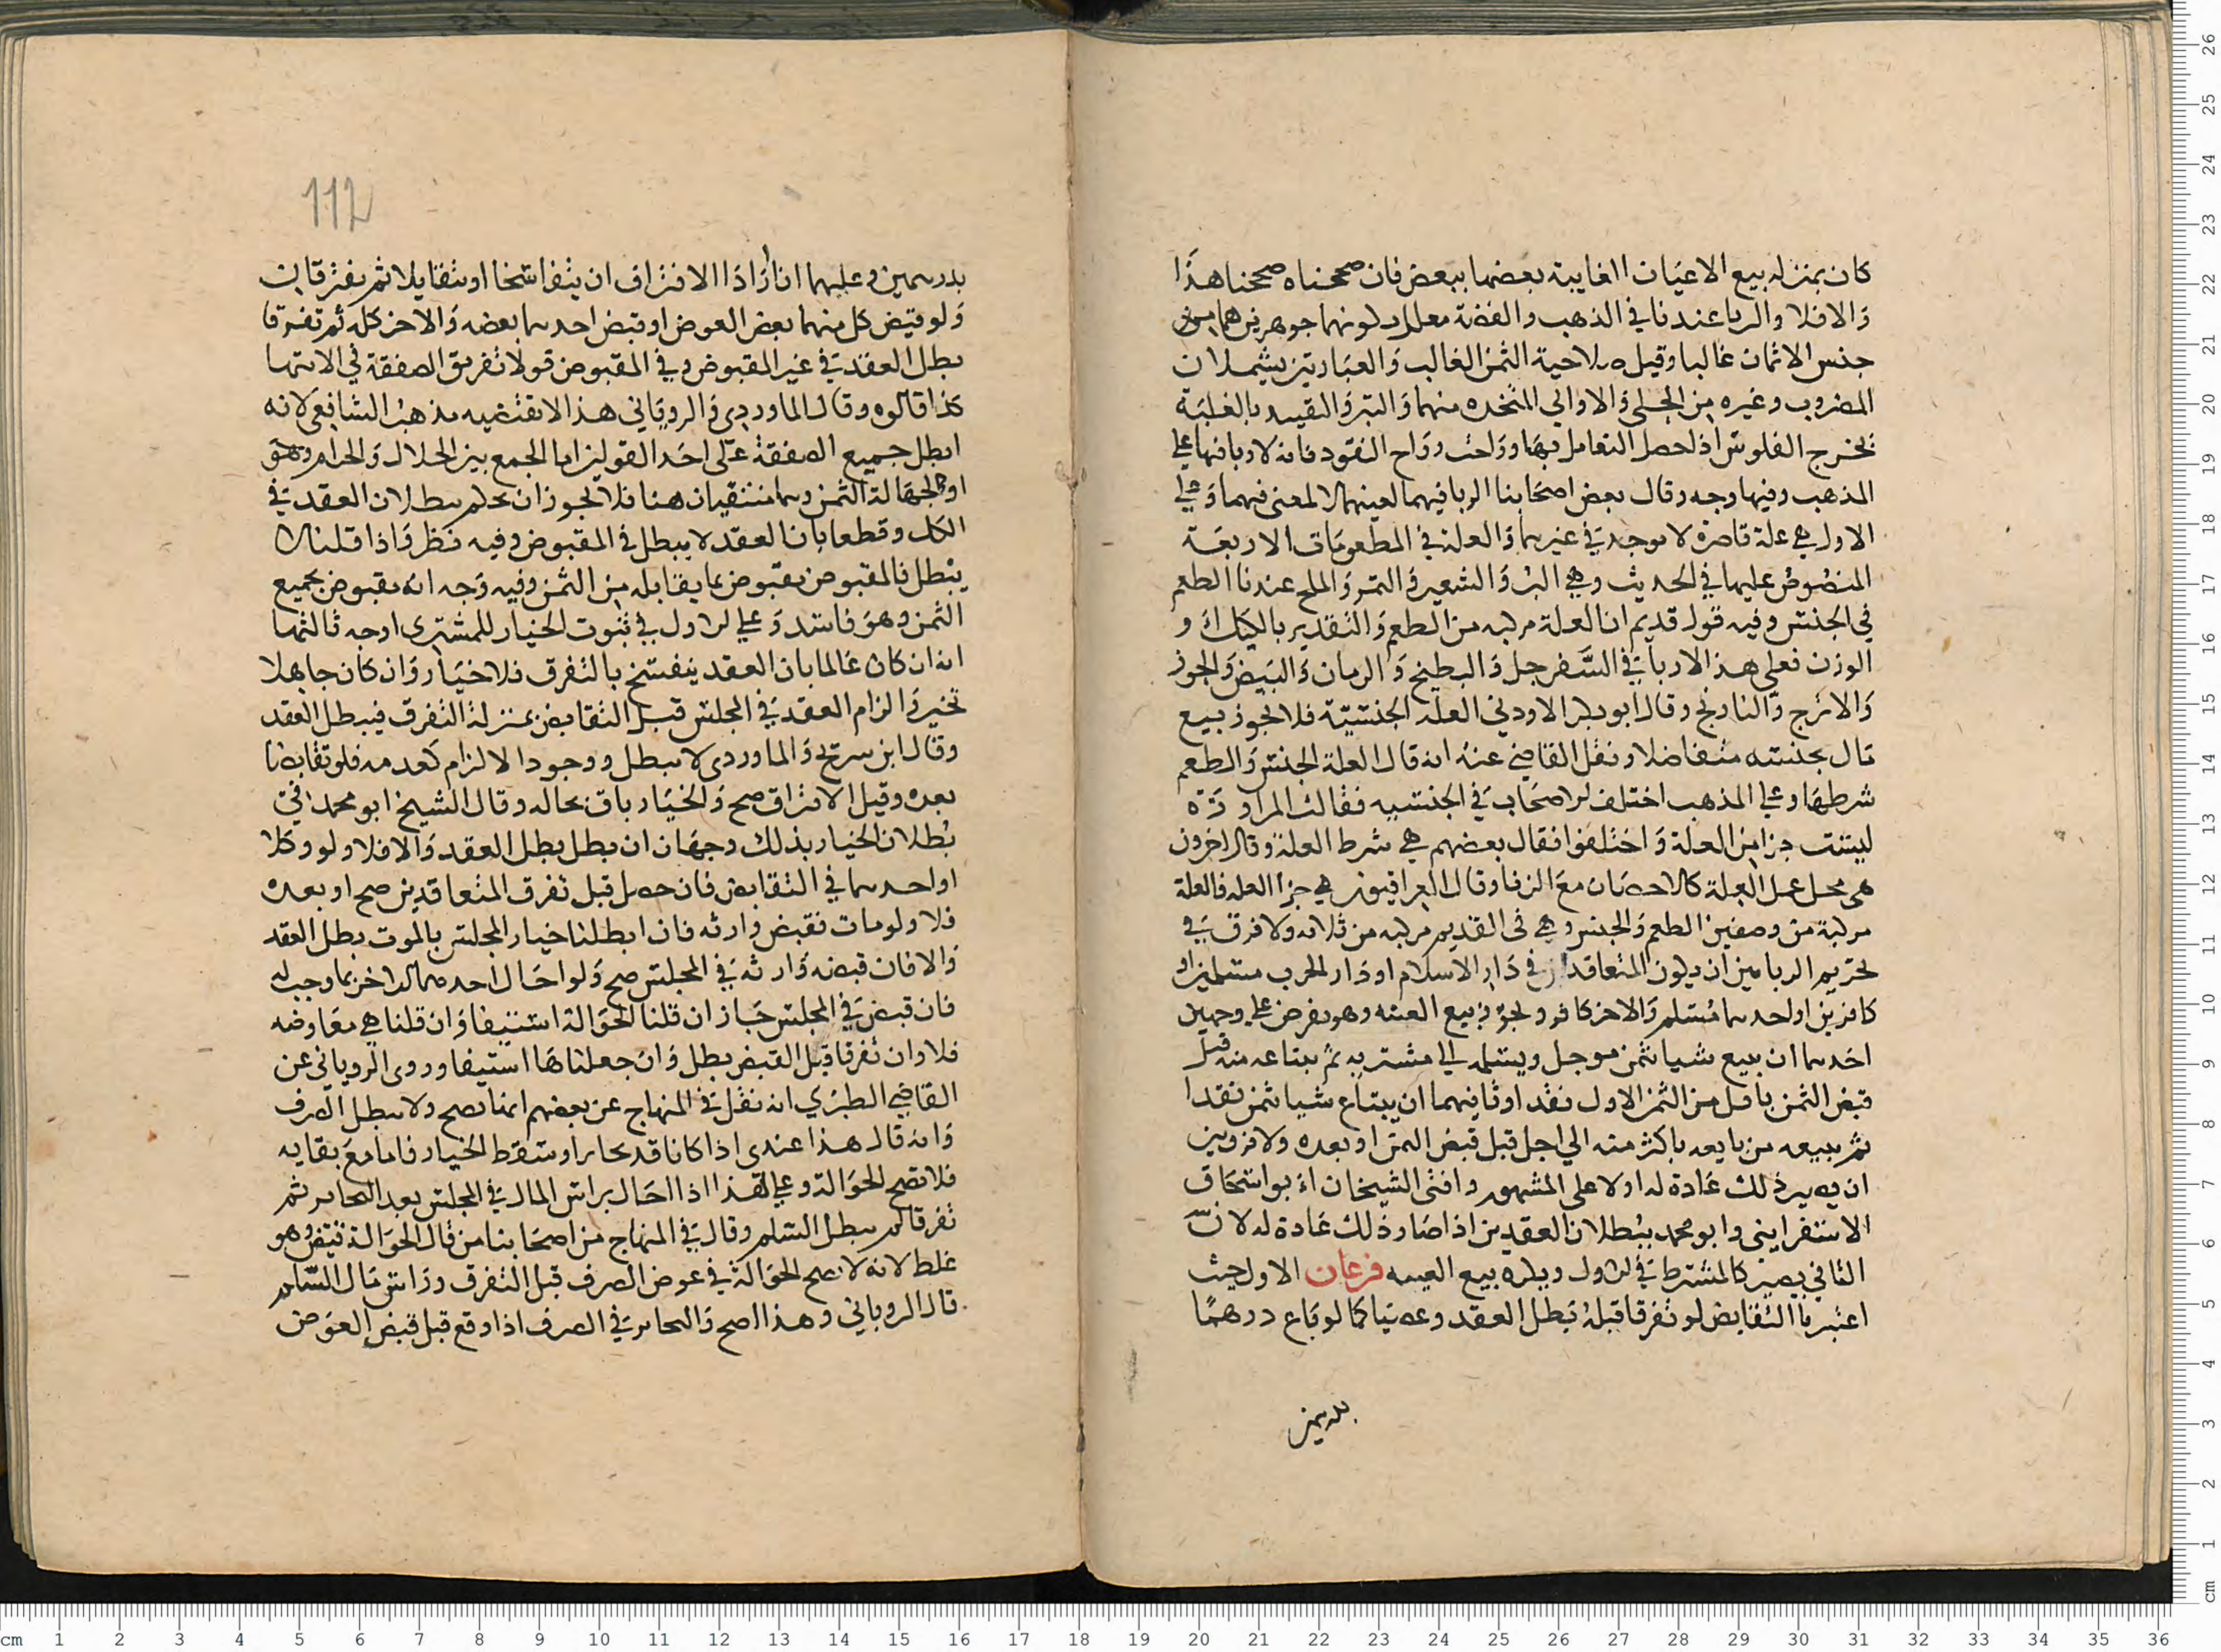 كان بمنزله بيع الاعيان الغايبة بعضها ببعض فان صححناه صححنا هذا
والا فلا والربا عندنا في الذهب والفضة معلل بكونهما جوهرين هما من
جنس الاثمان غالبا وقيل صلاحية الثمن الغالب والعبارتين يشملان
المضروب وغيره من الحلي والاواني المتخده منهما والتبر والتقييد بالغلبة
يخرج الفلوس اذا حصل التعامل بها وراجت رواج النقود فانه لا ربا فيها علي
المذهب وفيها وجه وقال بعض اصحابنا الربا فيهما لعينهما لا لمعنى فيهما وعلي
الاول هي علة قاصرة لا توجد في غيرهما والعلة في المطعومات الاربعة
المنصوص عليها في الحديث وهي البر والشعير والتمر والملح عندنا الطعم
في الجنس وفيه قول قديم ان العلة مركبه من الطعم والتقدير بالكيل او
الوزن فعلى هذا لا ربا في السفرجل والبطيخ والرمان والبيض والجوز
والاترج والنارنج وقال ابو بكر الاودني العله الجنسية فلا يجوز بيع
مال بجنسه متفاضلا ونقل القاضي عنه انه قال العلة الجنس والطعم
شرطها وعلي المذهب اختلف الاصحاب في الجنسيه فقال المراوزة
ليست جزا من العلة واختلفوا فقال بعضهم هي شرط العلة وقال اخرون
هى محل عمل العلة كالاحصان مع الزنا وقال العراقيون هي جزا العله فالعلة
مركبة من وصفين الطعم والجنس وهي في القديم مركبه من ثلاثه ولا فرق في
تحريم الربا بين ان يكون المتعاقدان في دار الاسلام او دار الحرب مسلمين او
كافرين او احدهما مسلم والاخر كافر ويجوز بيع العينه وهو يفرض علي وجهين
احدهما ان يبيع شيا بثمن موجل ويسلمه الي مشتريه ثم يبتاعه منه قبل
قبض الثمن باقل من الثمن الاول نقدا وثانيهما ان يبتاع شيا بثمن نقدا
ثم يبيعه من بايعه باكثر منه الي اجل قبل قبض الثمن او بعده ولا فرق بين
ان يصير ذلك عادة له او لا على المشهور وافتى الشيخان ابو اسحاق
الاسفرايني وابو محمد ببطلان العقدين اذا صار ذلك عادة له لان
الثاني يصير كالمشترط في الاول ويكره بيع العينه فرعان الاول حيث
اعتبرنا التقابض لو تفرقا قبله بطل العقد وعصيا كما لو باع درهما
بدرهمين
بدرهمين وعليهما اذا ارادا الافتراق ان يتفاسخا او يتقايلا ثم يفترقان
ولو قبض كل منهما بعض العوض او قبض احدهما بعضه والاخر كله ثم تفرقا
بطل العقد في غير المقبوض وفي المقبوض قولا تفريق الصفقة في الانتها
كذا قالوه وقال الماوردي والروياني هذا لا يقتضيه مذهب الشافعي لانه
ابطل جميع الصفقة على احد القولين اما لجمع بين الحلال والحرام وهو
او لجهالة الثمن وهما منتفيان هنا فلا يجوز ان نحكم ببطلان العقد في
الكل وقطعا بان العقد لا يبطل في المقبوض وفيه نظر واذا قلنا لا
يبطل فالمقبوض مقبوض بما يقابله من الثمن وفيه وجه انه مقبوض بجميع
الثمن وهو فاسد وعلي الاول في ثبوت الخيار للمشترى اوجه ثالثها
انه ان كان عالما بان العقد ينفسخ بالتفرق فلا خيار وان كان جاهلا
تخير والزام العقد في المجلس قبل التقابض بمنزلة التفرق فيبطل العقد
وقال ابن سريج والماوردي لا يبطل ووجود الالزام كعدمه فلو تقابضا
بعده وقبل الافتراق صح والخيار باق بحاله وقال الشيخ ابو محمد في
بطلان الخيار بذلك وجهان ان بطل بطل العقد والا فلا ولو وكلا
او احدهما في التقابض فان حصل قبل تفرق المتعاقدين صح او بعده
فلا ولو مات فقبض وارثه فان ابطلنا خيار المجلس بالموت بطل العقد
والا فان قبضه وارثه في المجلس صح ولو احال احدهما الاخر بما وجب له
فان قبض في المجلس جاز ان قلنا الحوالة استيفا وان قلنا هي معاوضه
فلا وان تفرقا قبل القبض بطل وان جعلناها استيفا وروى الروياني عن
القاضي الطبري انه نقل في المنهاج عن بعضهم انها تصح ولا يبطل الصرف
وانه قال هذا عندى اذا كانا قد تخايرا وسقط الخيار فاما مع بقايه
فلا تصح الحوالة وعلي هذا اذا احال براس المال في المجلس بعد التخاير ثم
تفرقا لم يبطل السلم وقال في المنهاج من اصحابنا من قال الحوالة تقبض وهو
غلط لانه لا تصح الحوالة في عوض الصرف قبل التفرق وراس مال السلم
قال الروياني وهذا اصح والتخاير في الصرف اذا وقع قبل قبض العوض
112